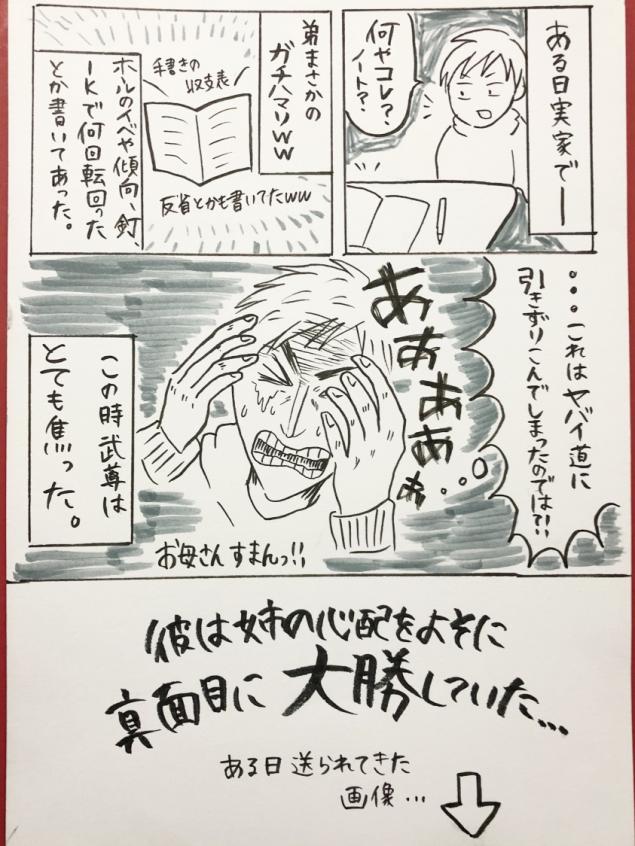 ある日実家でー
何やコレ?
ノート?
弟まさかの
ガチハマりww
手書きの
収支表
反省とかも書いてたww
ホルのイベや傾向、釘、
1Kで何回転回った
とか書いてあった。
・・・これはヤバイ道に
引きずりこんでしまったのでは?!
ああああぁ・・・
この時武尊は
とても焦った。
お母さんすまんっ!!
彼は姉の心配をよそに
真面目に大勝していた...
ある日送られてきた
画像...